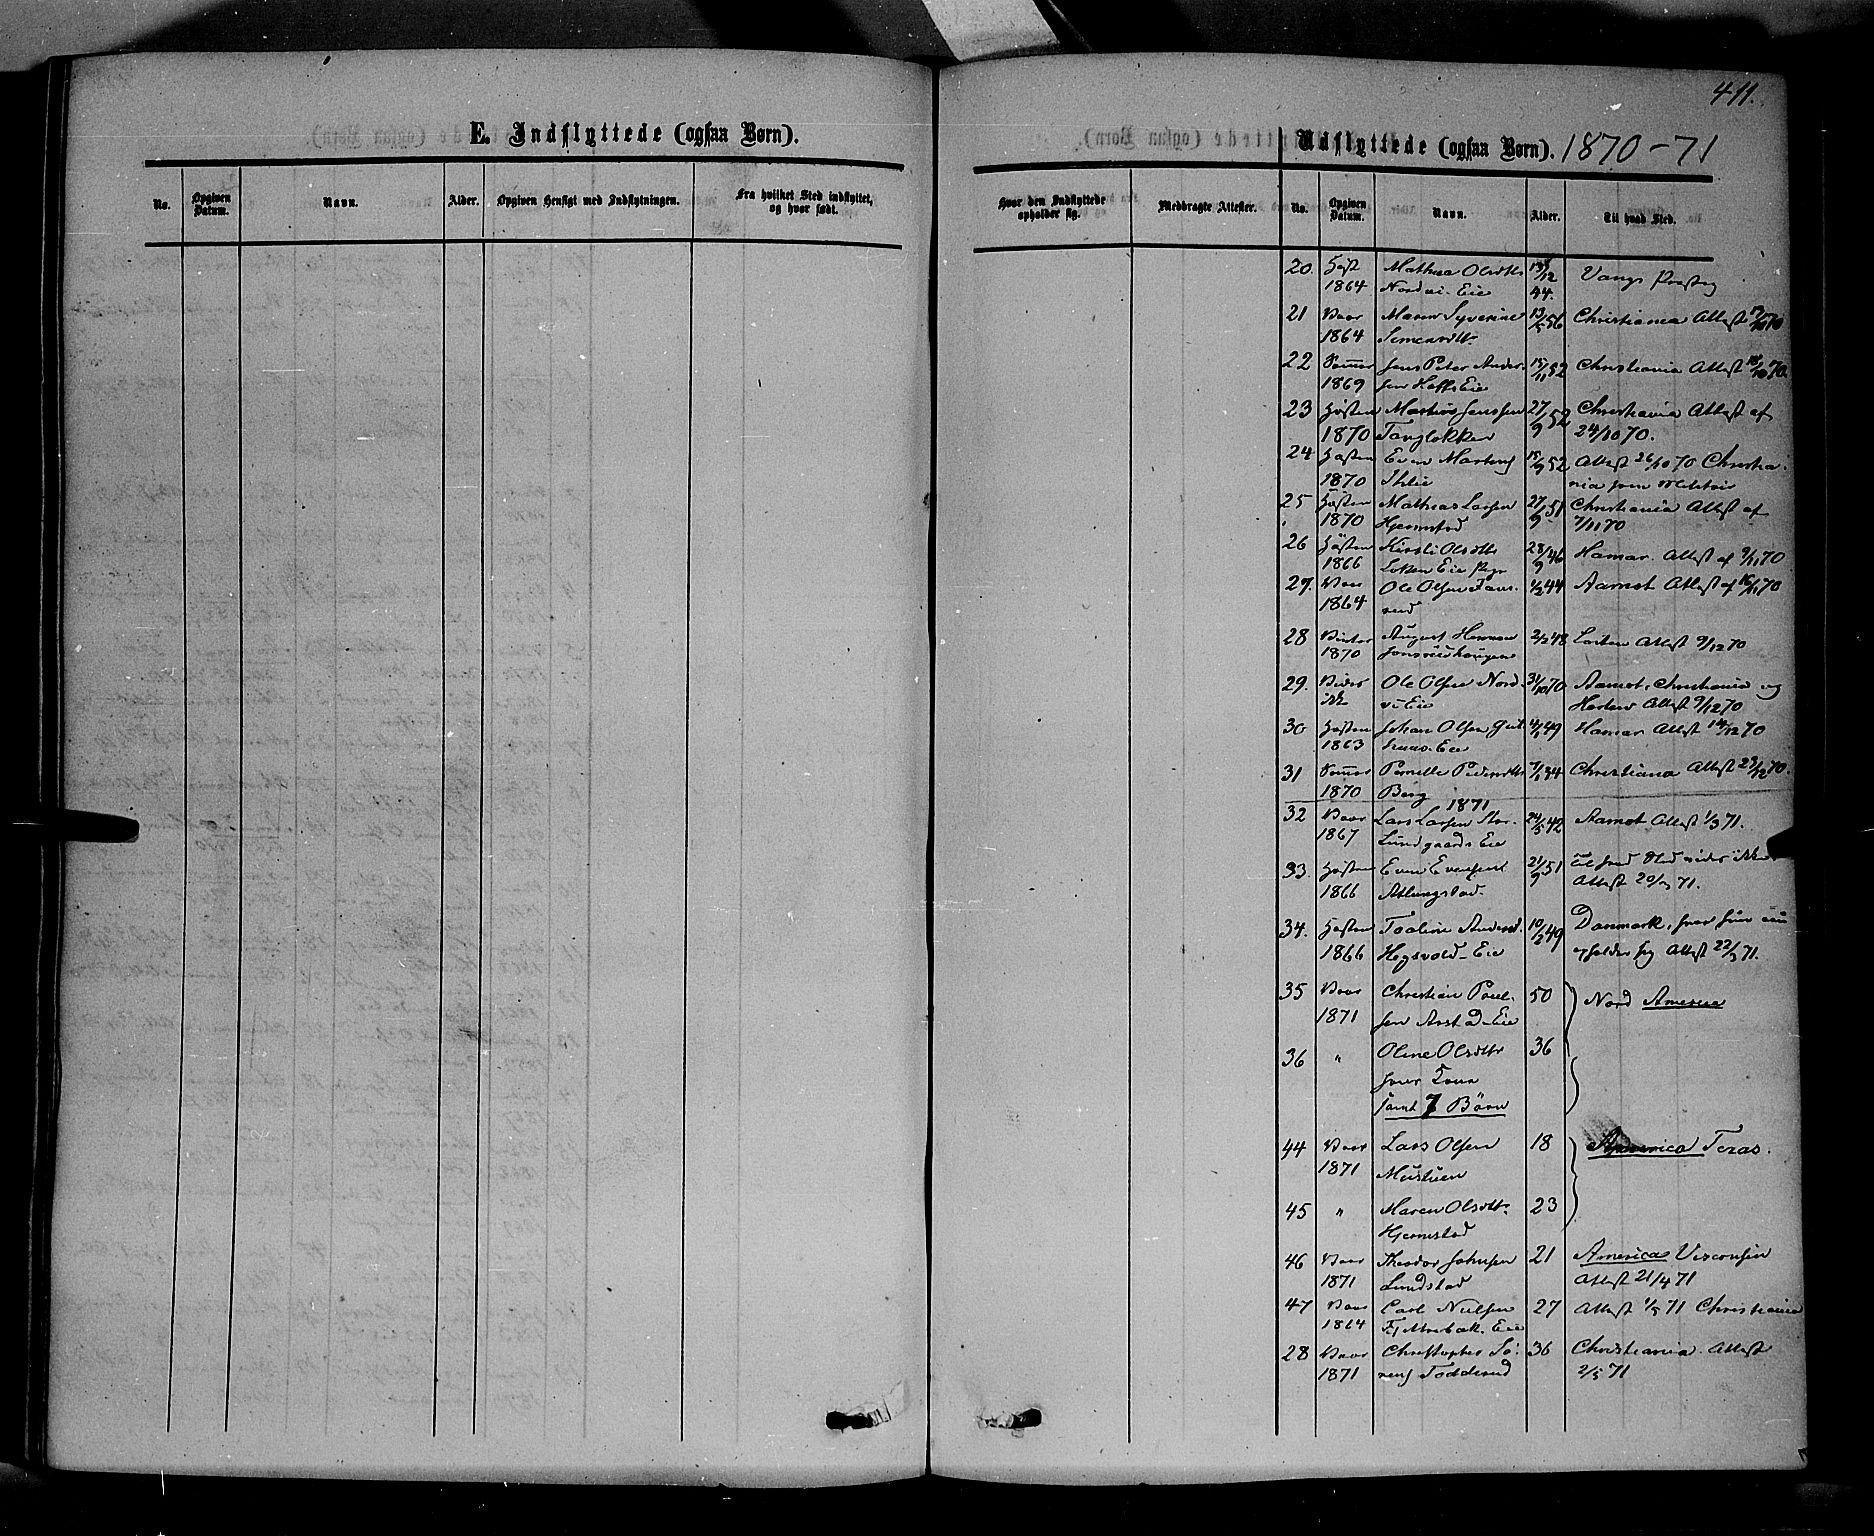 411.
E. Indflyttede (ogsaa Børn).
No. Opgiven Datum. Navn. Alder. Opgiven Hensigt med Indflytningen. Fra hvilket Sted indflyttet, og hvor født.
Udflyttede (ogsaa Børn). 1870-71
Hvor den Indflyttede opholder sig. Medbragte Attester. No. Opgiven Datum. Navn. Alder. Til hvad Sted.
20. Høst Mathea Olsdtr 12 Vangs Prestg
1864 Nordvi-Eie 44.
21 Vaar Maren Syverine 13/5 56 Christiania Attest 70
1864 Simensdtr
22 Sommer Jens Peter Ander- 15/11 32 Christiania Attest 18/10 70.
1869 sen Hoffs Eie
23 Høsten Martius Jenssen 27/9 52 Christiania Attest af
1870 24/10 70.
24 Høsten Even Martens 15/9 52 Attest 26/10 70 Christia-
1870 nia som Militær
25 Høsten Mathias Larsen 27/9 51 Christiania Attest af
1870 Hjermstad 7/11 70
26 Høsten Kirsti Olsdtr 28/9 46 Hamar. Attest af 9/11 70
1866 Løken Eie
27. Vaar Ole Olsen 1/2 44 Aamot Attest af 16/11 70
1864
28 Vinter August Herman 2/2 48 Løiten Attest 9/12 70
1870
29. Ole Olsen Nord- 31/10 70 Aamot, Christiania og
vi Eie Attest 9/12 70
30 Høsten Johan Olsen 4/1 49 Hamar Attest 14/12 70
1863 Eie
31 Sommer Pernille Pedersdtr 7/1 34 Christiana Attest 23/12 70.
1870 Berg
1871
32 Vaar Lars Larsen Stor- 24/5 42 Aamot Attest 1/3 71.
1867 Lundgaards Eie
33. Høsten Even Evensen 21/9 51 til hvad Sted vides ikke
1866 Atlungstad. Attest 20/3 71.
34. Høsten Toline Andersd. 10/2 49 Danmark, hvor hun nu
1866 Hegsvold-Eie opholder sig Attest 22/3 71.
35 Vaar Christian Poul- 50 Nord America
1871 sen Arstad-Eie
36 " Oline Olsdtr 36
hans Kone
samt 7 Børn
44 Vaar Lars Olsen 18 America Texas.
1871 Mustuen
45 " Maren Olsdtr. 23
Hjermstad
46 Vaar Theodor Johnsen 21 America Visconsin
1871 Lundstad Attest 21/4 71
47 Vaar Carl Nielsen 27 Attest 1/5 71 Christiania
1864 Eie
28 Vaar Christopher Sø- 36 Christiania. Attest
1871 rens Todderud 2/5 71